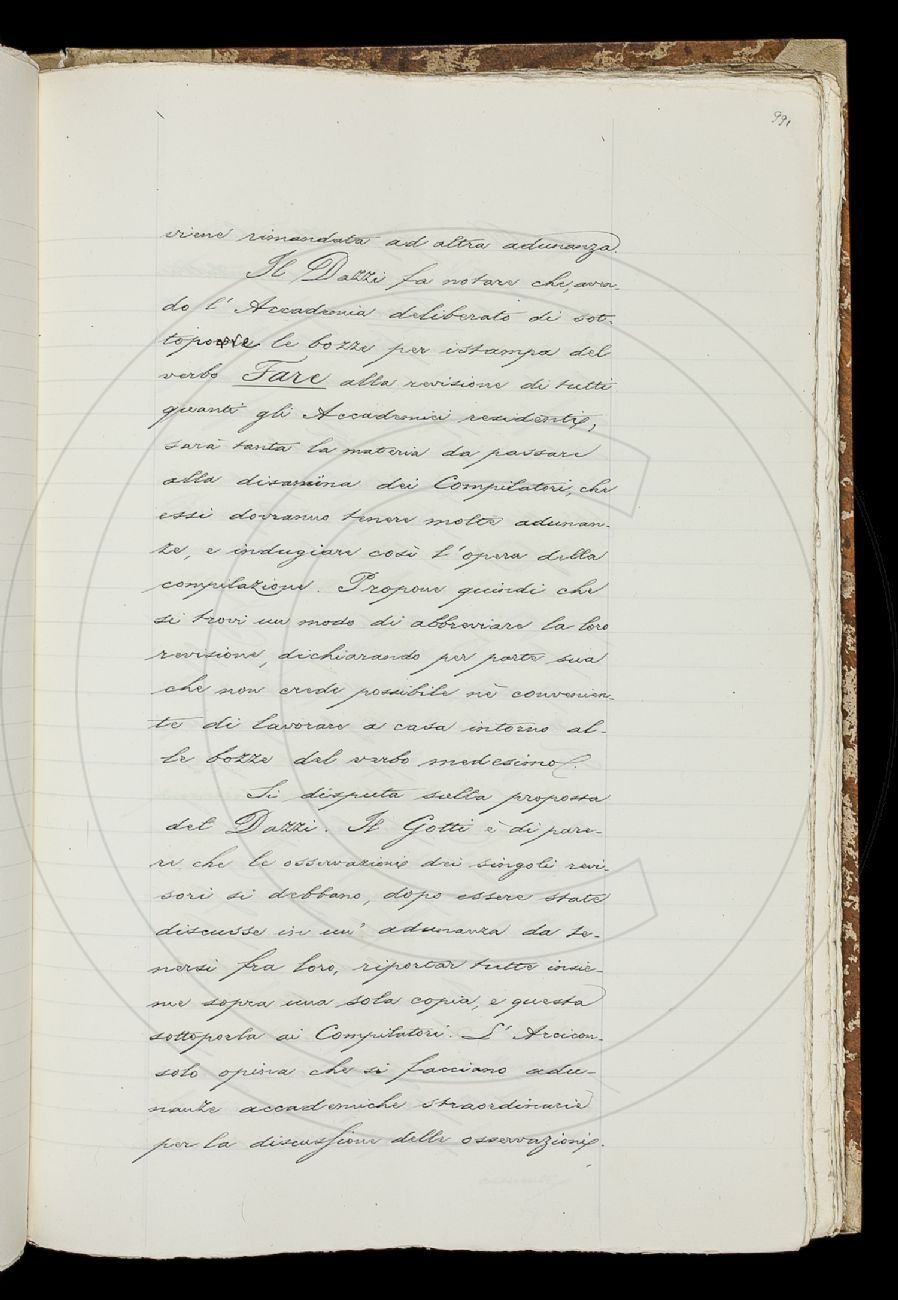 991
viene rimandata ad altra adunanza.
Il Dazzi fa notare che, aven-
do l' Accademia deliberato di sot-
toporre le bozze per istampa del
verbo Fare alla revisione di tutti
quanti gli Accademici residenti,
sarà tanta la materia da passare
alla disamina dei Compilatori, che
essi dovranno tenere molte adunan-
ze, e indugiare così l'opera della
compilazione. Propone quindi che
si trovi un modo di abbreviare la loro
revisione, dichiarando per parte sua
che non crede possibile nè convenien-
te di lavorare a casa intorno al-
le bozze del verbo medesimo.
Si disputa sulla proposta
del Dazzi. Il Gotti è di pare-
re che le osservazioni dei singoli revi-
sori si debbano, dopo essere state
discusse in un' adunanza da te-
nersi fra loro, riportar tutte insie-
me sopra una sola copia, e questa
sottoporla ai Compilatori. L' Arcicon-
solo opina che si facciano adu-
nanze accademiche straordinarie
per la discussione delle osservazioni.